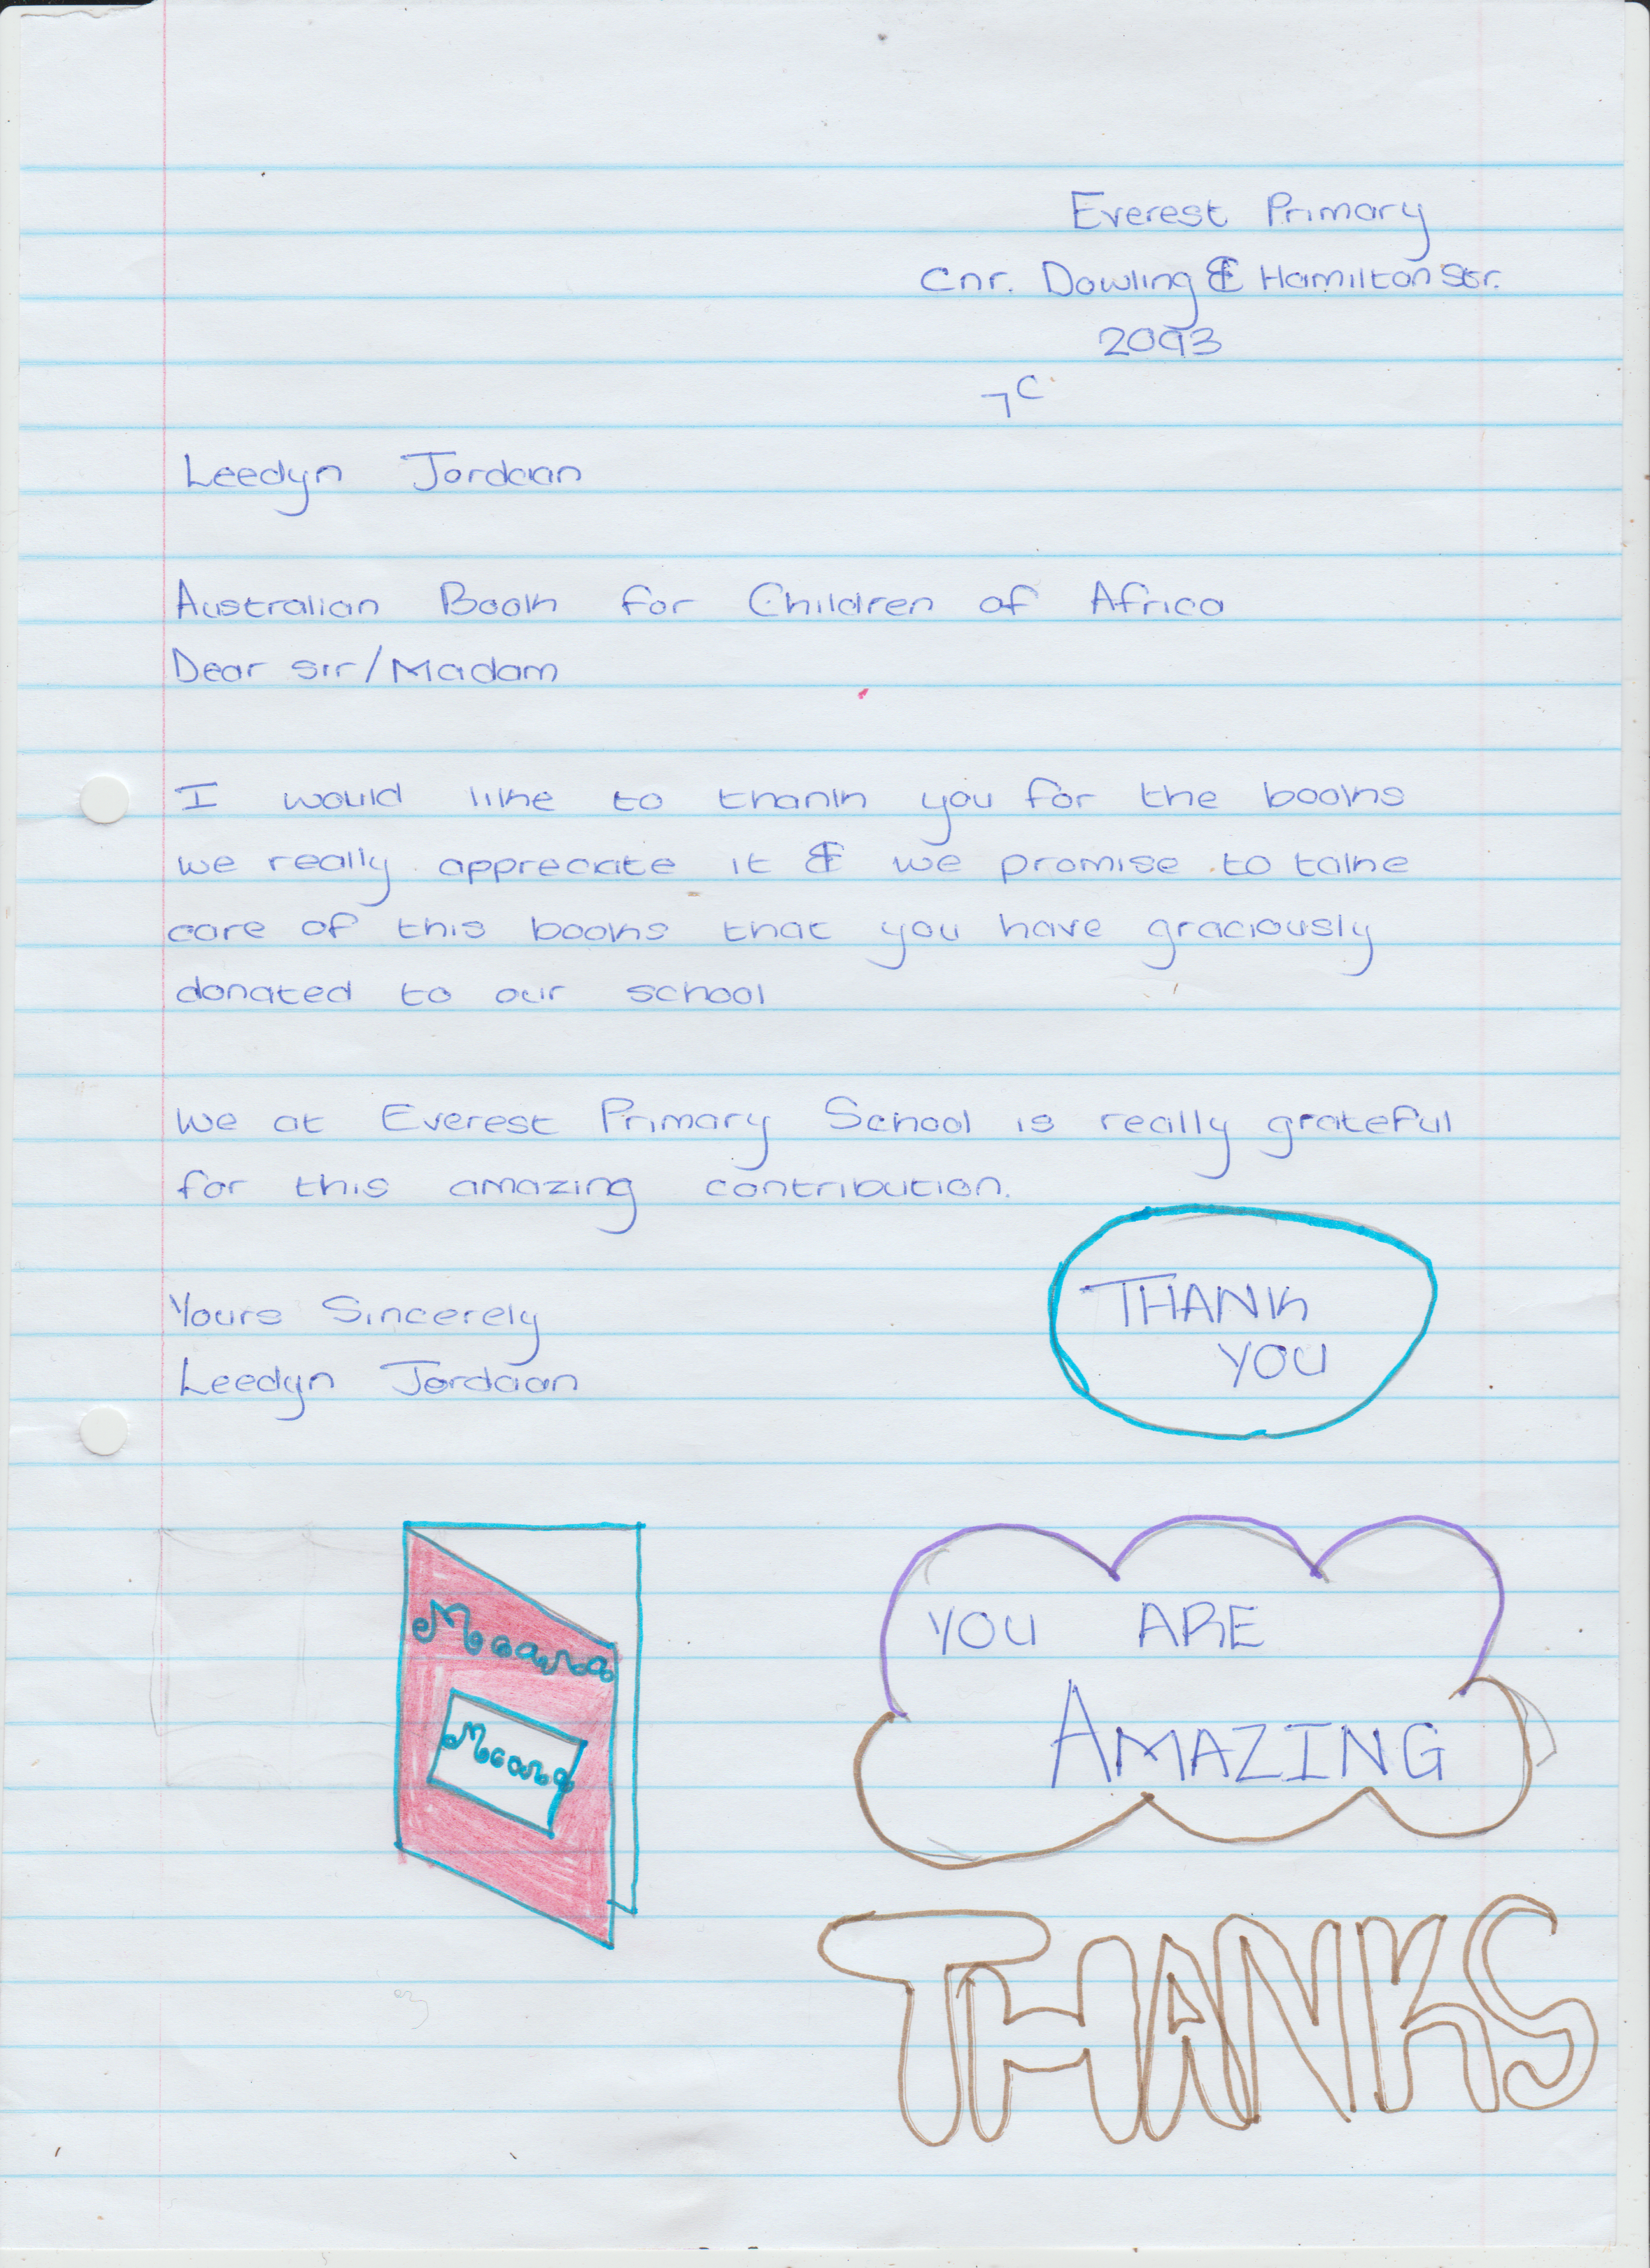 Everest Primary
Cnr. Dowling & Hamilton Str.
2093
7C
Leedyn Jordaan
Australian Book for Children of Africa
Dear Sir/Madam
I would like to thank you for the books
we really appreciate it & we promise to take
care of this books that you have graciously
donated to our school
We at Everest Primary School is really grateful
for this amazing contribution.
Yours Sincerely
Leedyn Jordaan
THANK
YOU
YOU ARE
AMAZING
THANKS